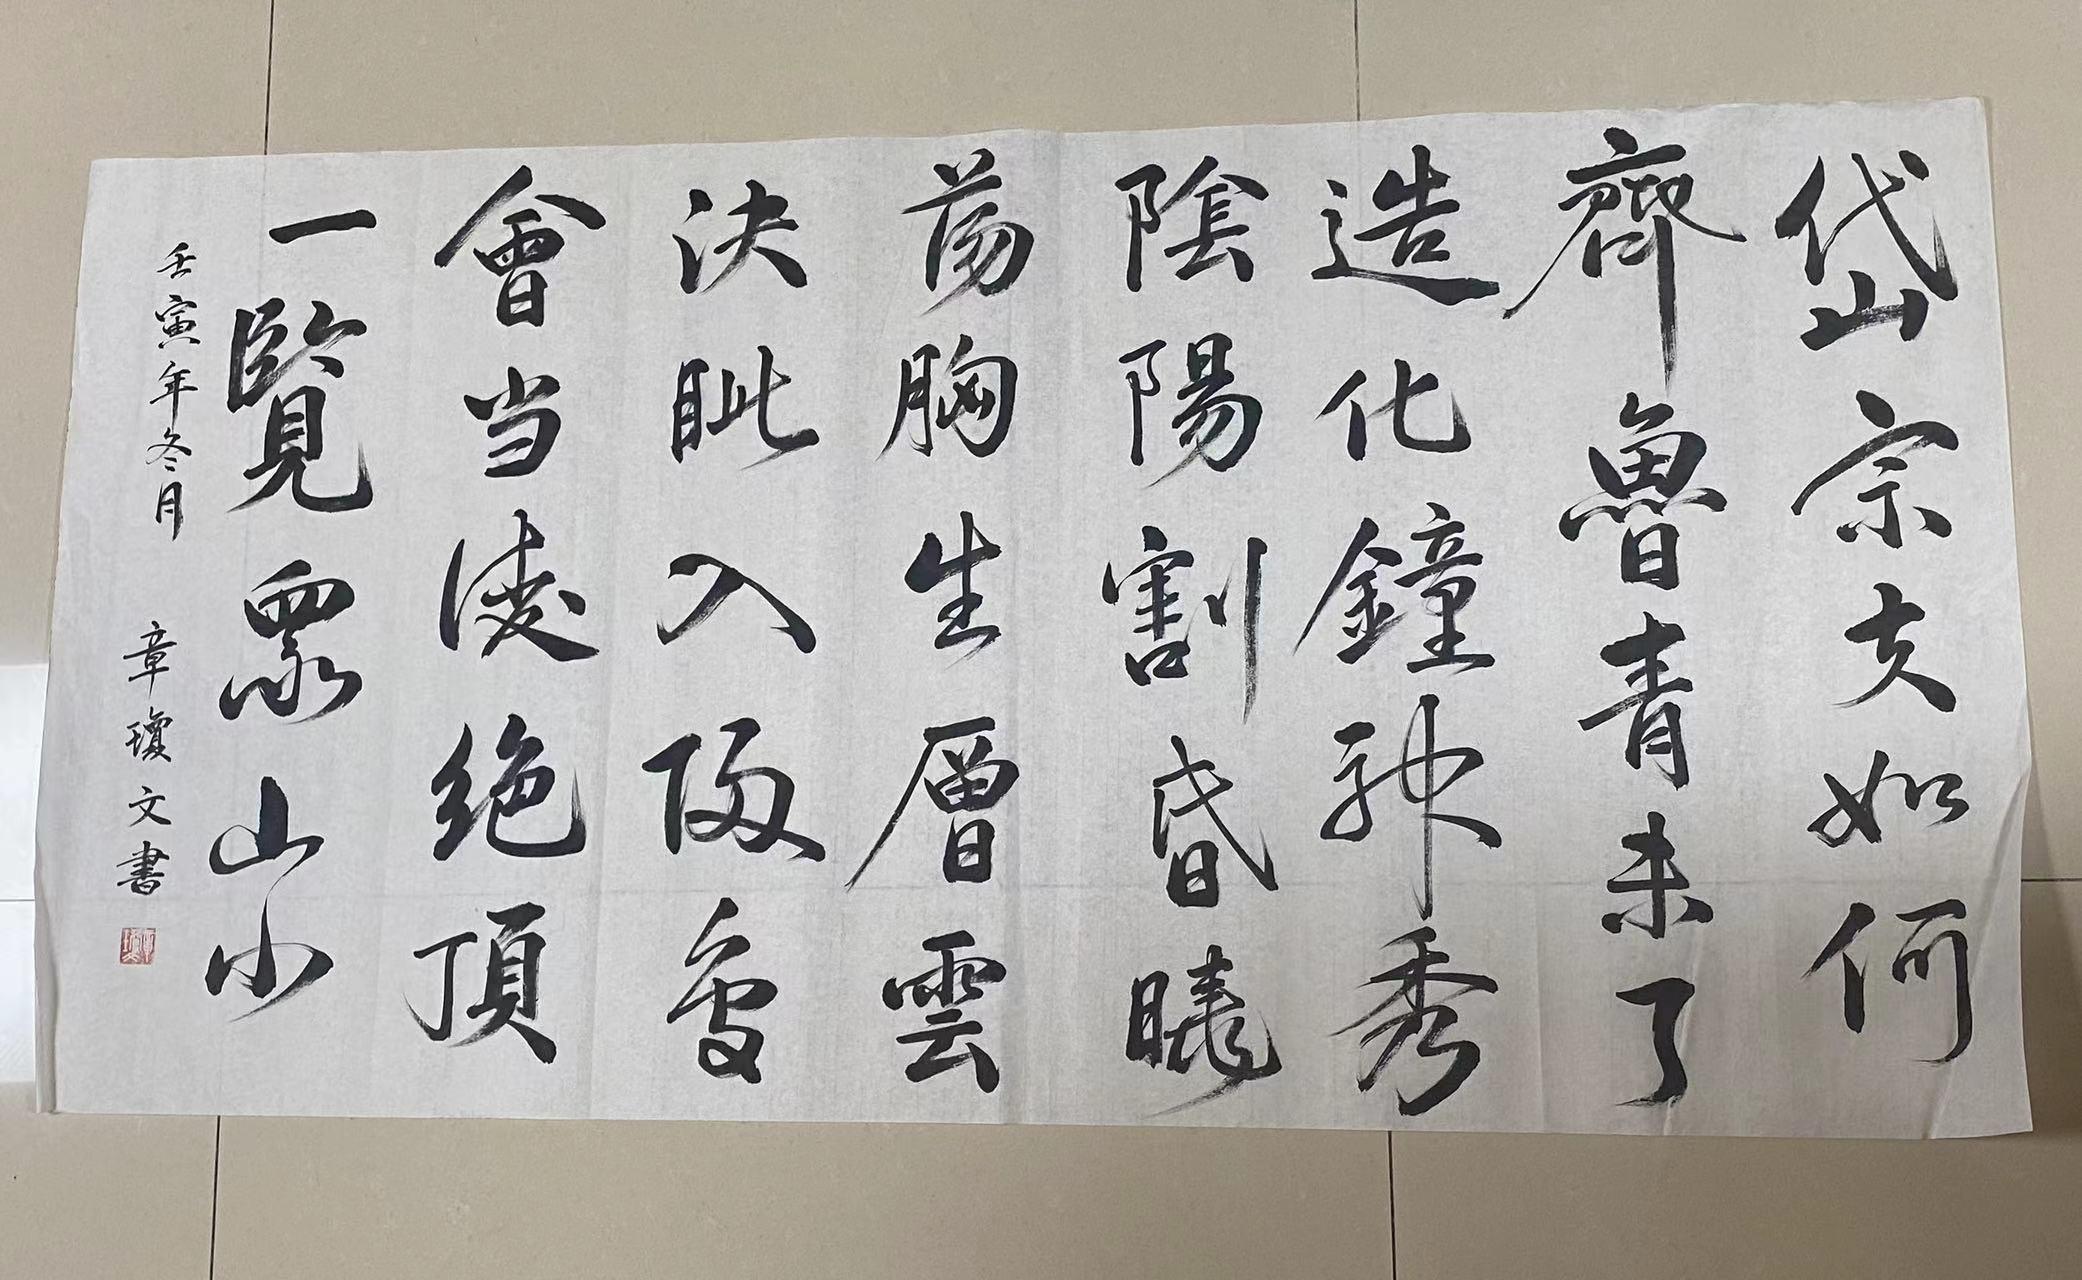 岱宗夫如何
齊魯青未了
造化鐘神秀
陰陽割昏曉
蕩胸生層雲
决眦入歸鳥
會当凌絶頂
一覽眾山小
壬寅年冬月 章瓊文書